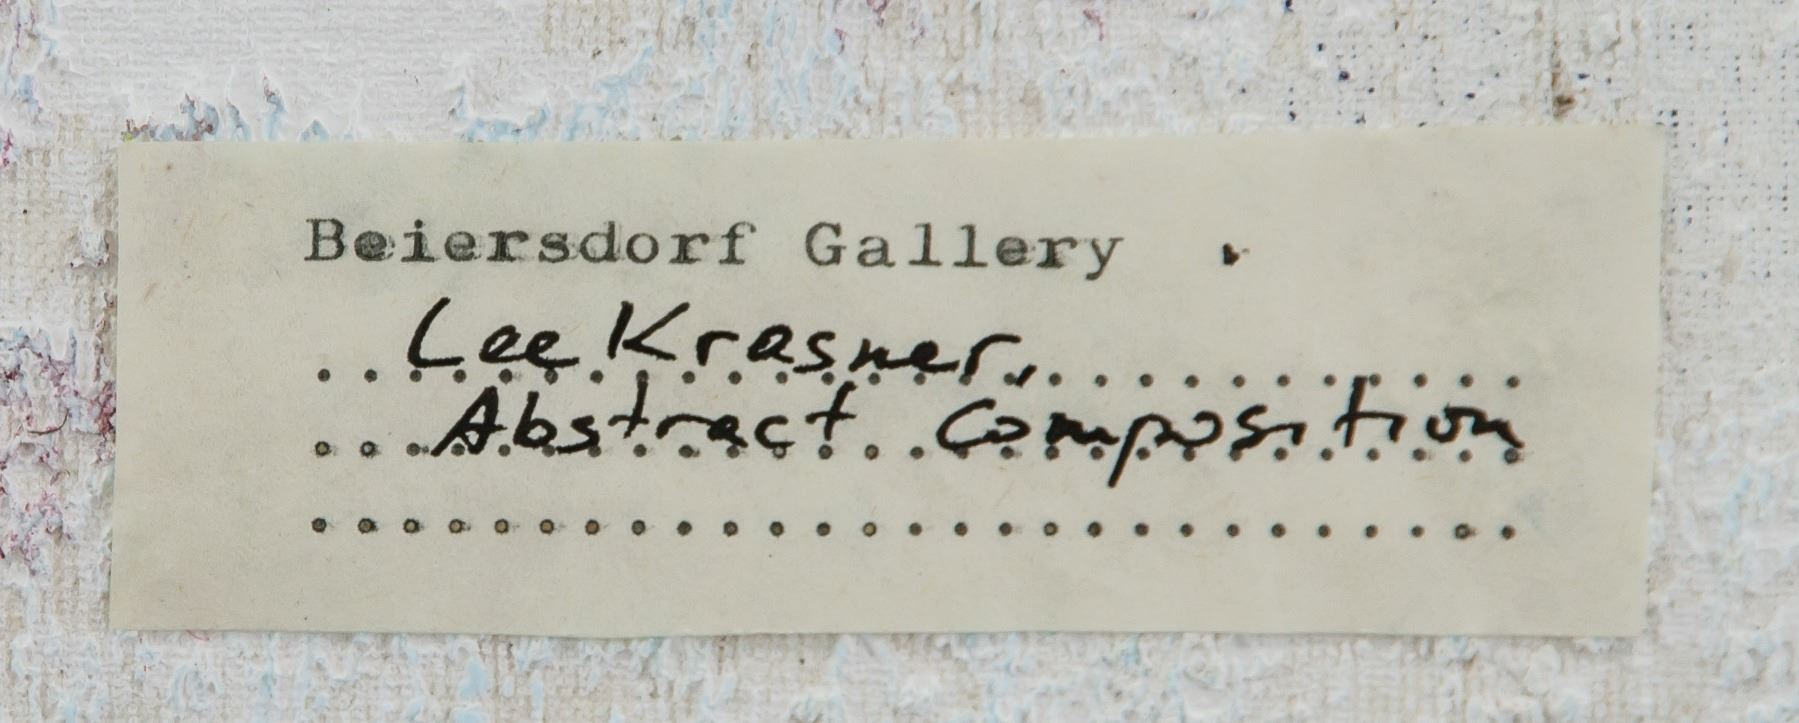 Beiersdorf Gallery
Lee Krasner,
Abstract Composition